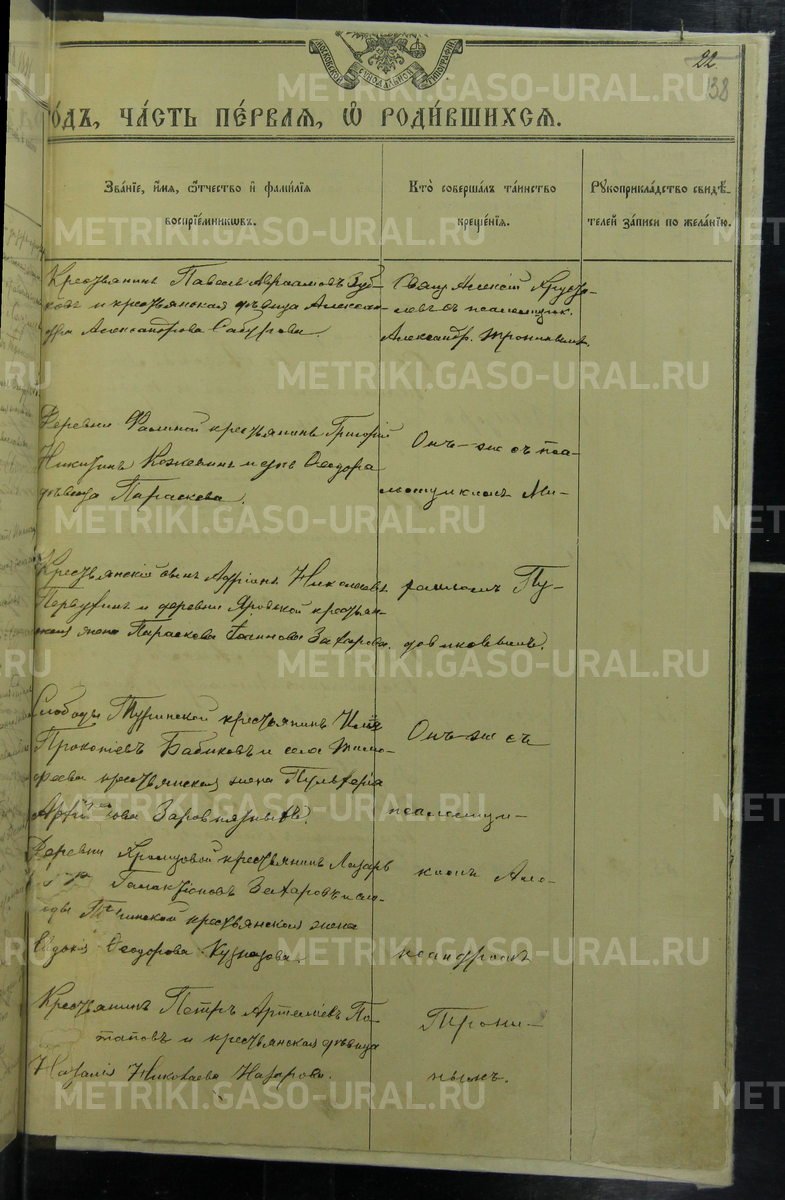 МОСКОВСКОЙ СУНОДАЛЬНОЙ ТИПОГРАФІИ
22
38
METRIKI.GASO-URAL.RU
ѻдъ, ча́сть пе́рваѧ, ѽ роди́вшихсѧ.
Зва́нїе, и҆́мѧ, ѻ҆́тчество и҆ фами́лїѧ
воспрїе́мниковъ.
Кто̀ соверша́лъ та́инство
креще́нїѧ.
Рꙋкоприкла́дство свидѣ́-
телей за́писи по жела́нїю.
Крестьянинъ Павелъ Авраамовъ Зуб-
ковъ и крестьянская дѣвица Алексан-
дра Александрова Сабурова.
Свящ. Алексій Хрус-
левъ съ псаломщик.
Александр. Трониныхъ.
Деревни Фалиной крестьянинъ Григорій
Никитинъ Кожевинъ и дочь Ѳеодора
дѣвица Параскева.
Онъ-же съ пса-
ломщикомъ Ми-
Крестьянскій сынъ Адріанъ Николаевъ
Первухинъ и деревни Яровской крестьян-
ская жена Параскева Іоаннова Захарова.
хаиломъ Пу-
довиковымъ.
Слободы Туринской крестьянинъ Илія
Прокопіевъ Бабиковъ и села Тимо-
феева крестьянская жена Пульхерія
Заровнятныхъ.
Онъ-же съ
псаломщи-
Деревни крестьянинъ Лазарь
Галактіоновъ Захаровъ и сло-
боды Туринской крестьянская жена
Евдокія Ѳеодорова Кузнецова.
комъ Але-
ксандромъ
Крестьянинъ Петръ Артеміевъ По-
таповъ и крестьянская дѣвица
Наталія Николаева Назарова.
Трони-
нымъ.